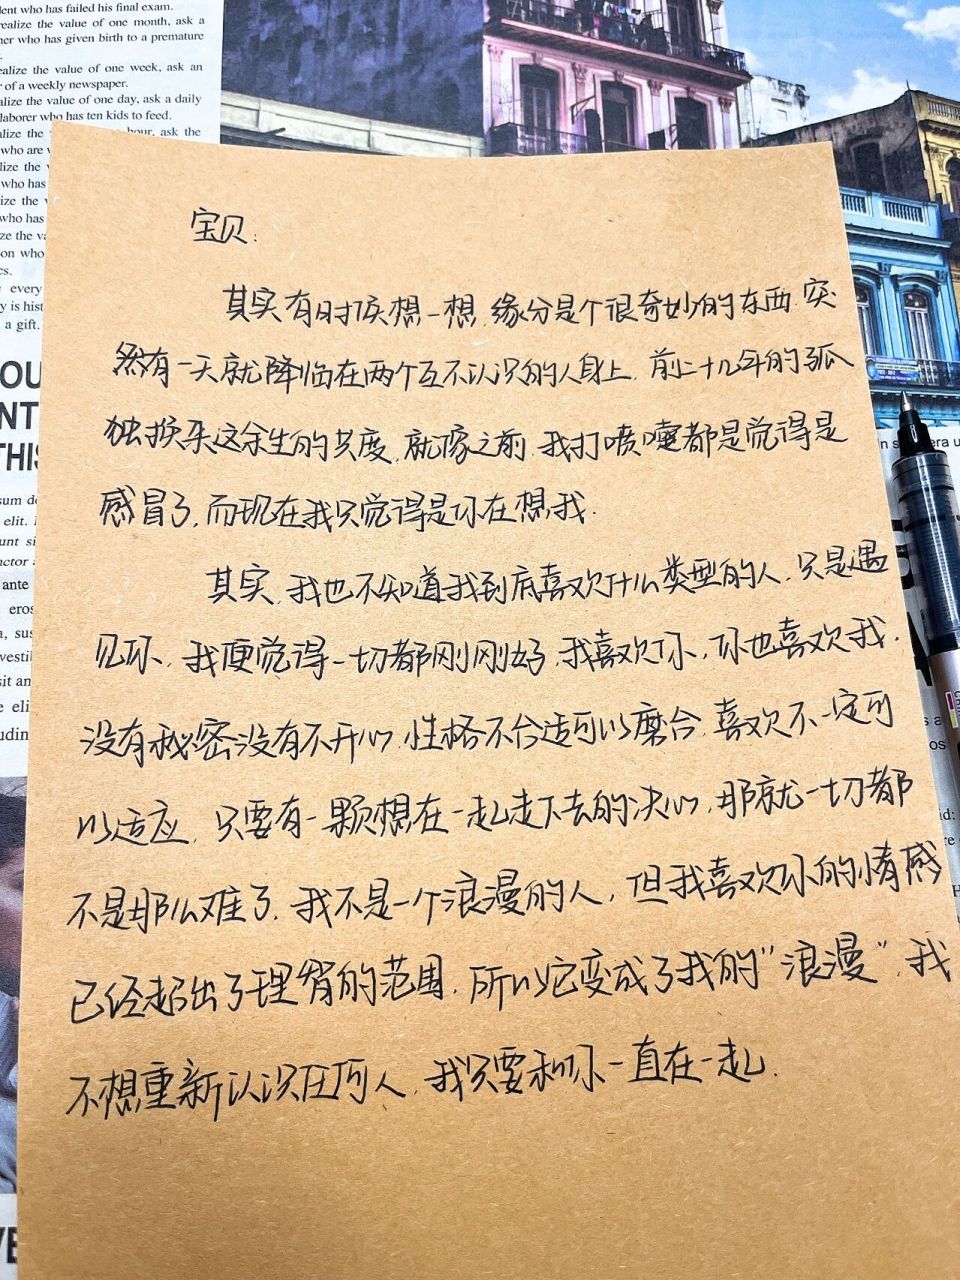 ent who has failed his final exam.
realize the value of one month, ask a
her who has given birth to a premature
ealize the value of one week, ask an
r of a weekly newspaper.
alize the value of one day, ask a daily
laborer who has ten kids to feed.
alize the hour, ask the
who are
lize the
who has
ize the
who has
ze the
on who
every
y is
a gift.
OU
NT
THIS
宝贝:
其实有时候想一想,缘分是个很奇妙的东西,突
然有一天就降临在两个互不认识的人身上,前二十几年的孤
独换来这余生的共度,就像之前,我打喷嚏都是觉得是
感冒了,而现在我只觉得是你在想我.
其实,我也不知道我到底喜欢什么类型的人,只是遇
见你,我便觉得一切都刚刚好,我喜欢你,你也喜欢我.
没有秘密没有不开心,性格不合适可以磨合,喜欢不一定可
以适应,只要有一颗想在一起走下去的决心,那就一切都
不是那么难了.我不是一个浪漫的人,但我喜欢你的情感
已经超出了理智的范围.所以它变成了我的"浪漫",我
不想重新认识任何人,我只要和你一直在一起.